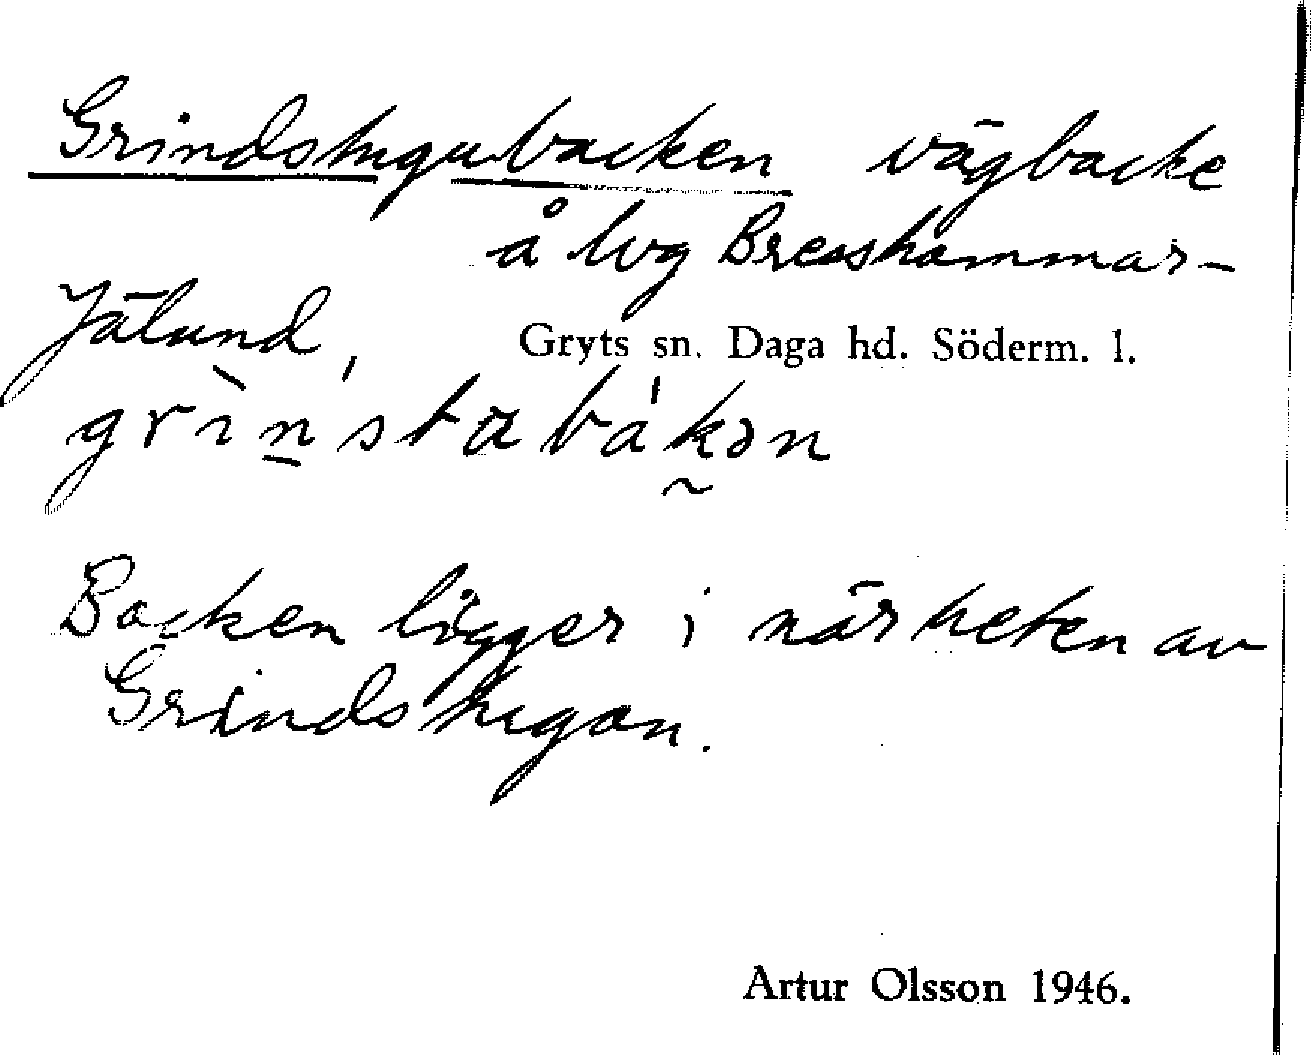 Grindstugubacken vägbacke
å lvg Bresshammar-
Jälund,
Gryts sn. Daga hd. Söderm. l.
grìnstabákən
Backen ligger i närheten av
Grindstugan.
Artur Olsson 1946.